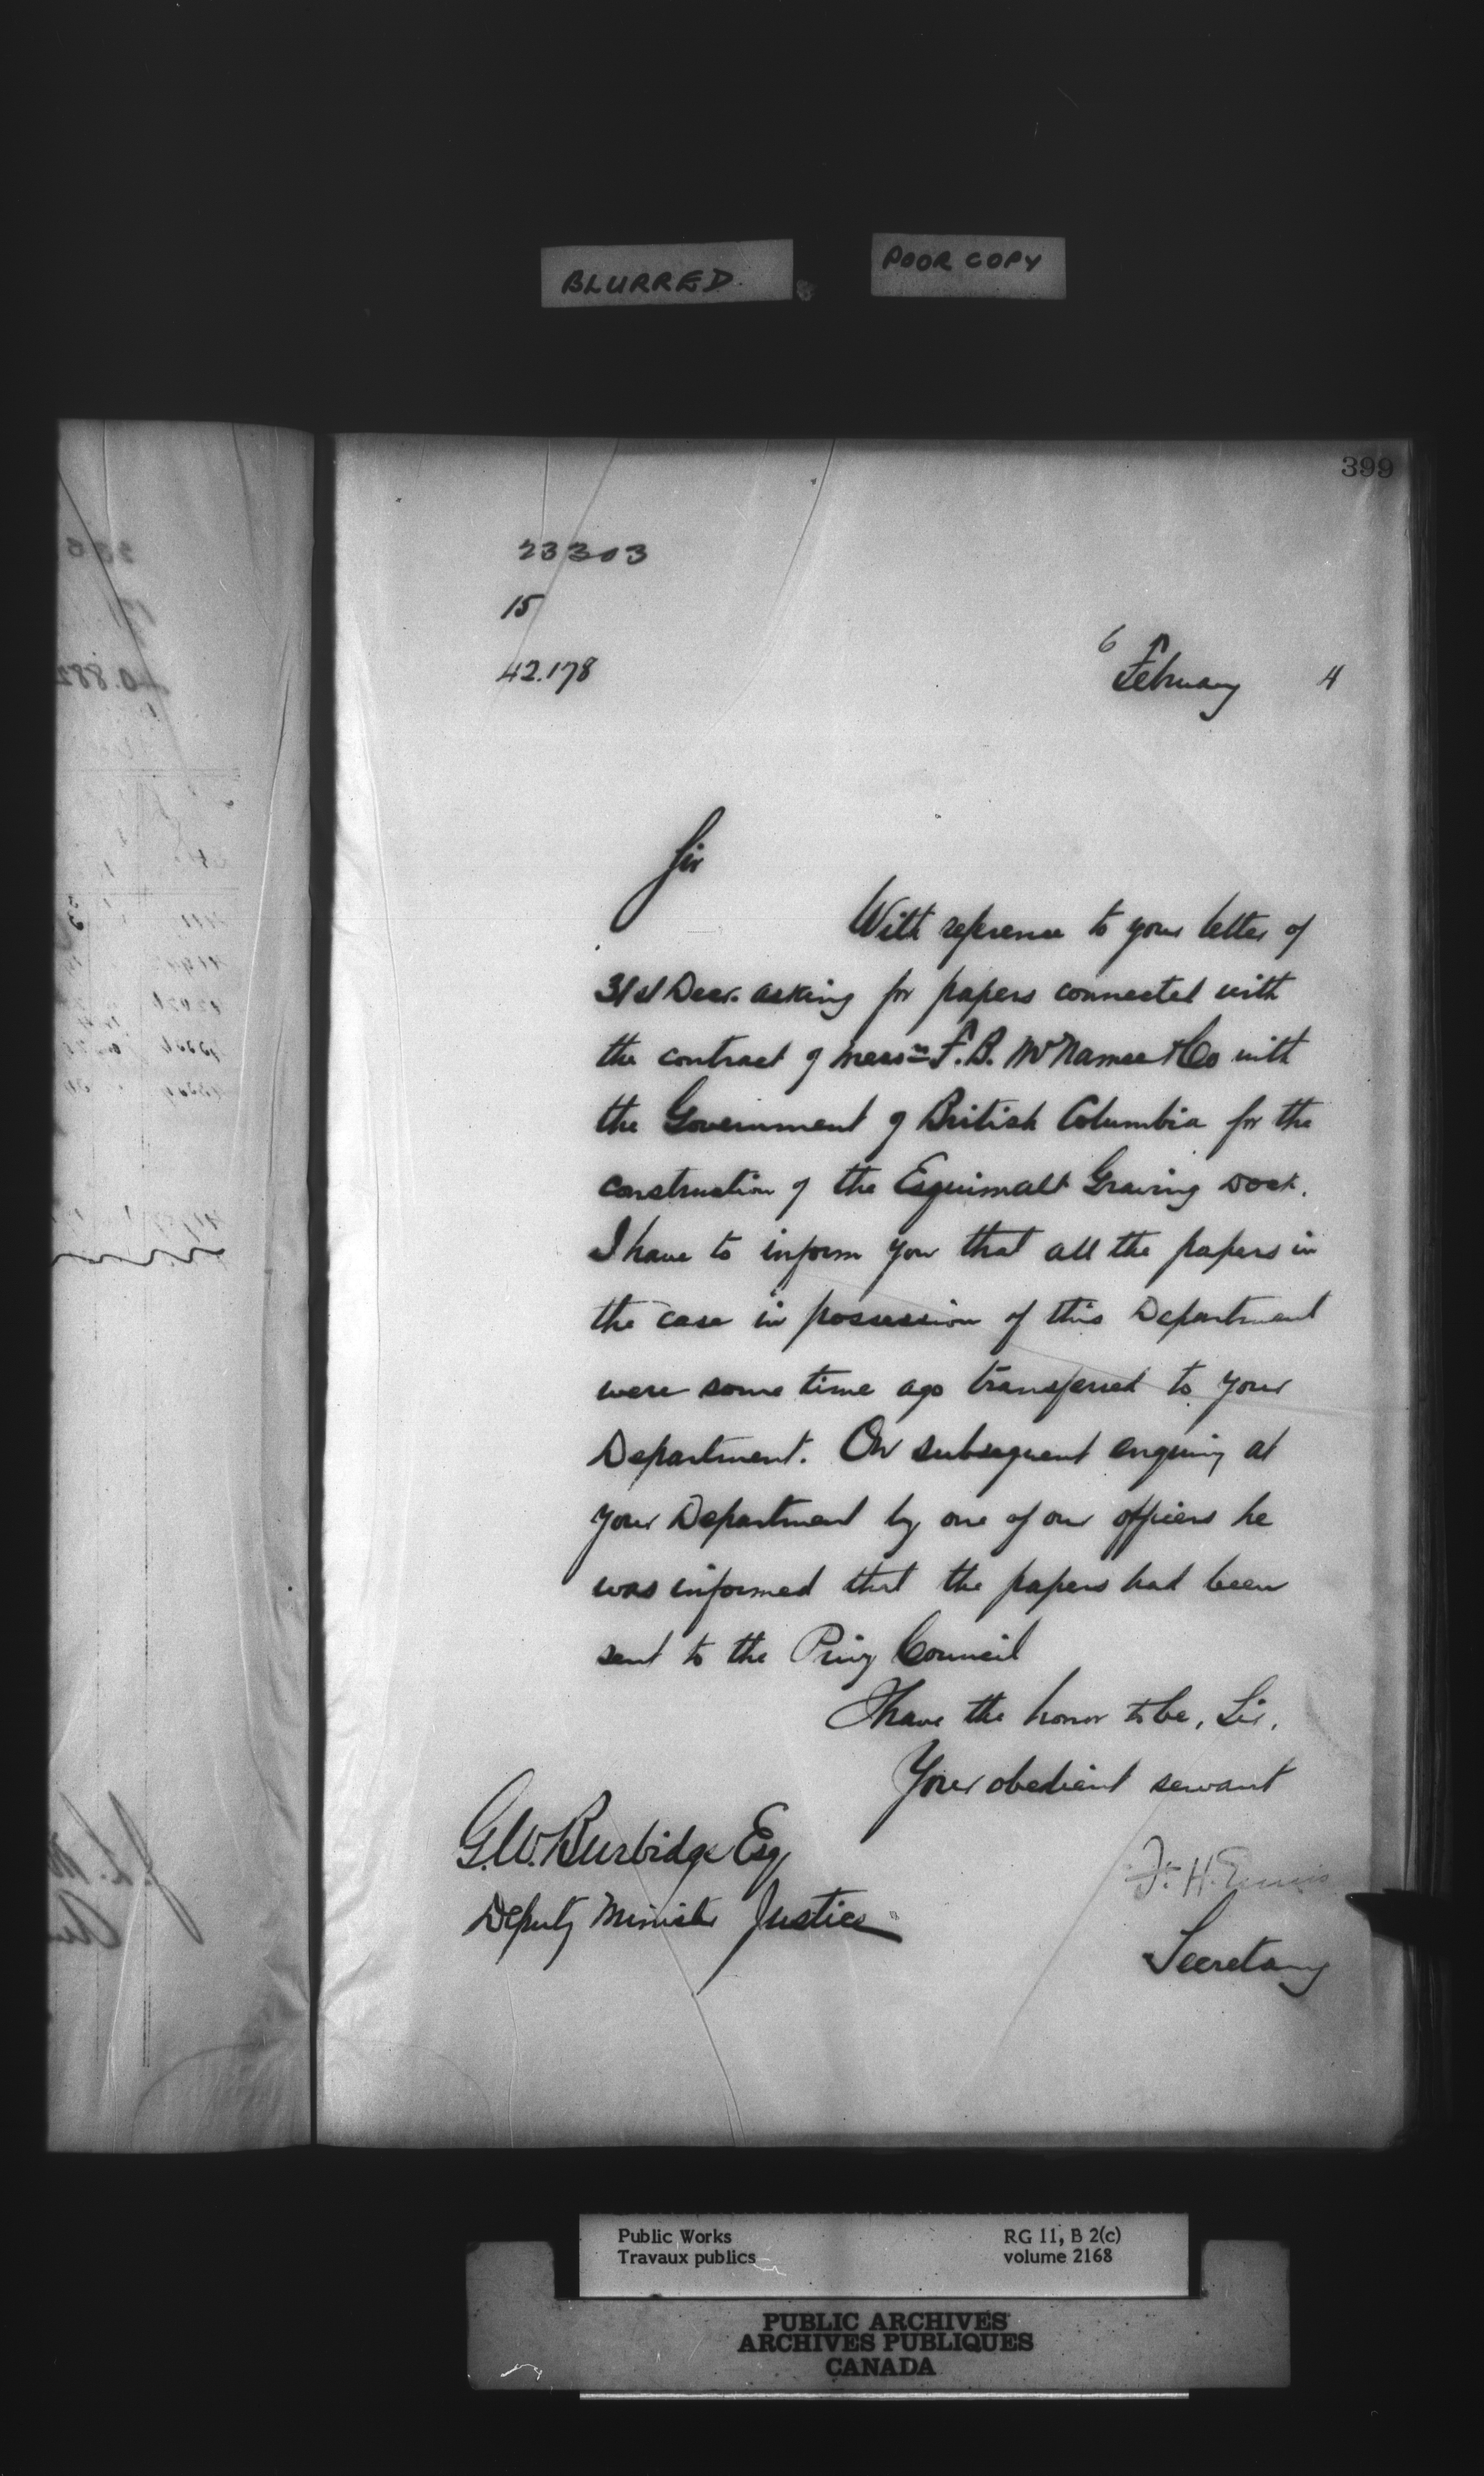 BLURRED
POOR COPY
399
23303
15
42.178
6 February 4
Sir
With reference to your letter of
31st Decr. asking for papers connected with
the contract of Messrs F. B. McNamee & Co with
the Government of British Columbia for the
construction of the Esquimalt Graving Dock.
I have to inform you that all the papers in
the case in possession of this Department
were some time ago transferred to your
Department. On subsequent enquiry at
your Department by one of our officers he
was informed that the papers had been
sent to the Privy Council
I have the honor to be, Sir,
Your obedient servant
G.W. Burbidge Esq
Deputy Minister Justice
F. H. Ennis
Secretary
Public Works
Travaux publics
RG 11, B 2(c)
volume 2168
PUBLIC ARCHIVES
ARCHIVES PUBLIQUES
CANADA